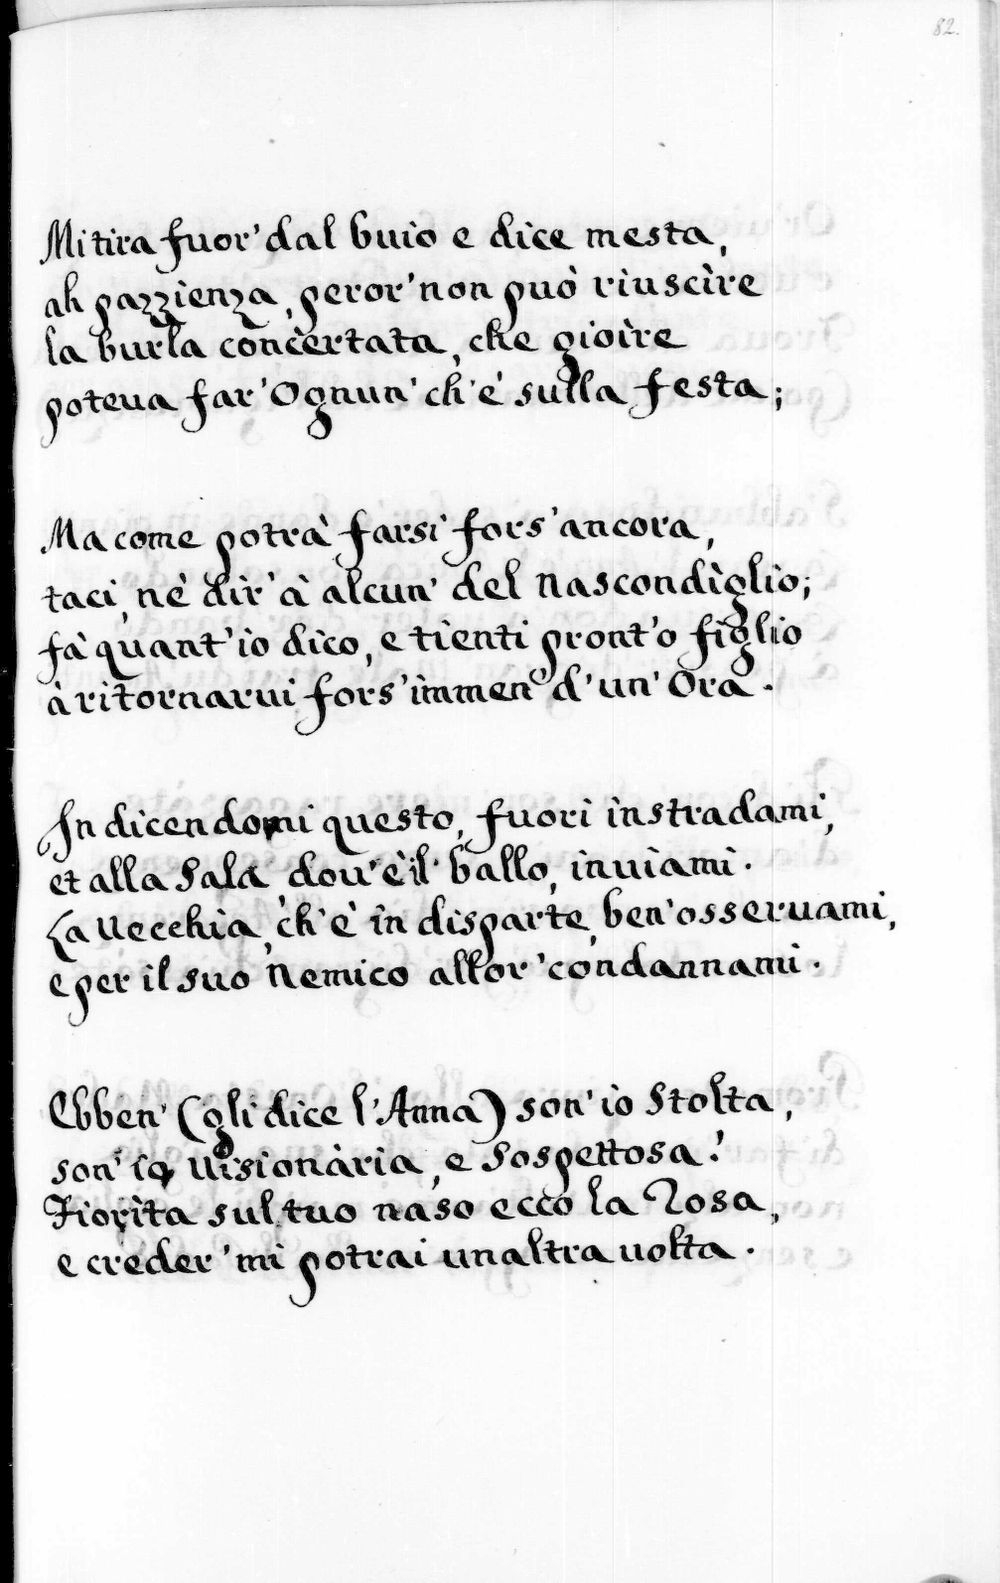 82.
Mi tira fuor' dal buio e dice mesta,
ah pazzienza, peror' non può riuscìre
la burla concertata, che gioìre
poteua far' Ognun' ch'è sulla festa;
Ma come potrà farsi fors' ancora,
taci, nè dir' à alcun' del Nascondiglio;
fà quant' io dico, e tienti pront' o figlio
à ritornarui fors' immen d' un' Ora.
In dicendomi questo, fuori instradami,
et alla Sala dou' è il ballo, inuiami.
La Uecchia, ch' è in disparte, ben' osseruami,
e per il suo Nemico allor' condannami.
Ebben' (gli dice l'Anna) son' io Stolta,
son' io uisionària, e Sospettosa?
Fiorìta sul tuo naso ecco la Rosa,
e creder' mi potrai unaltra uolta.